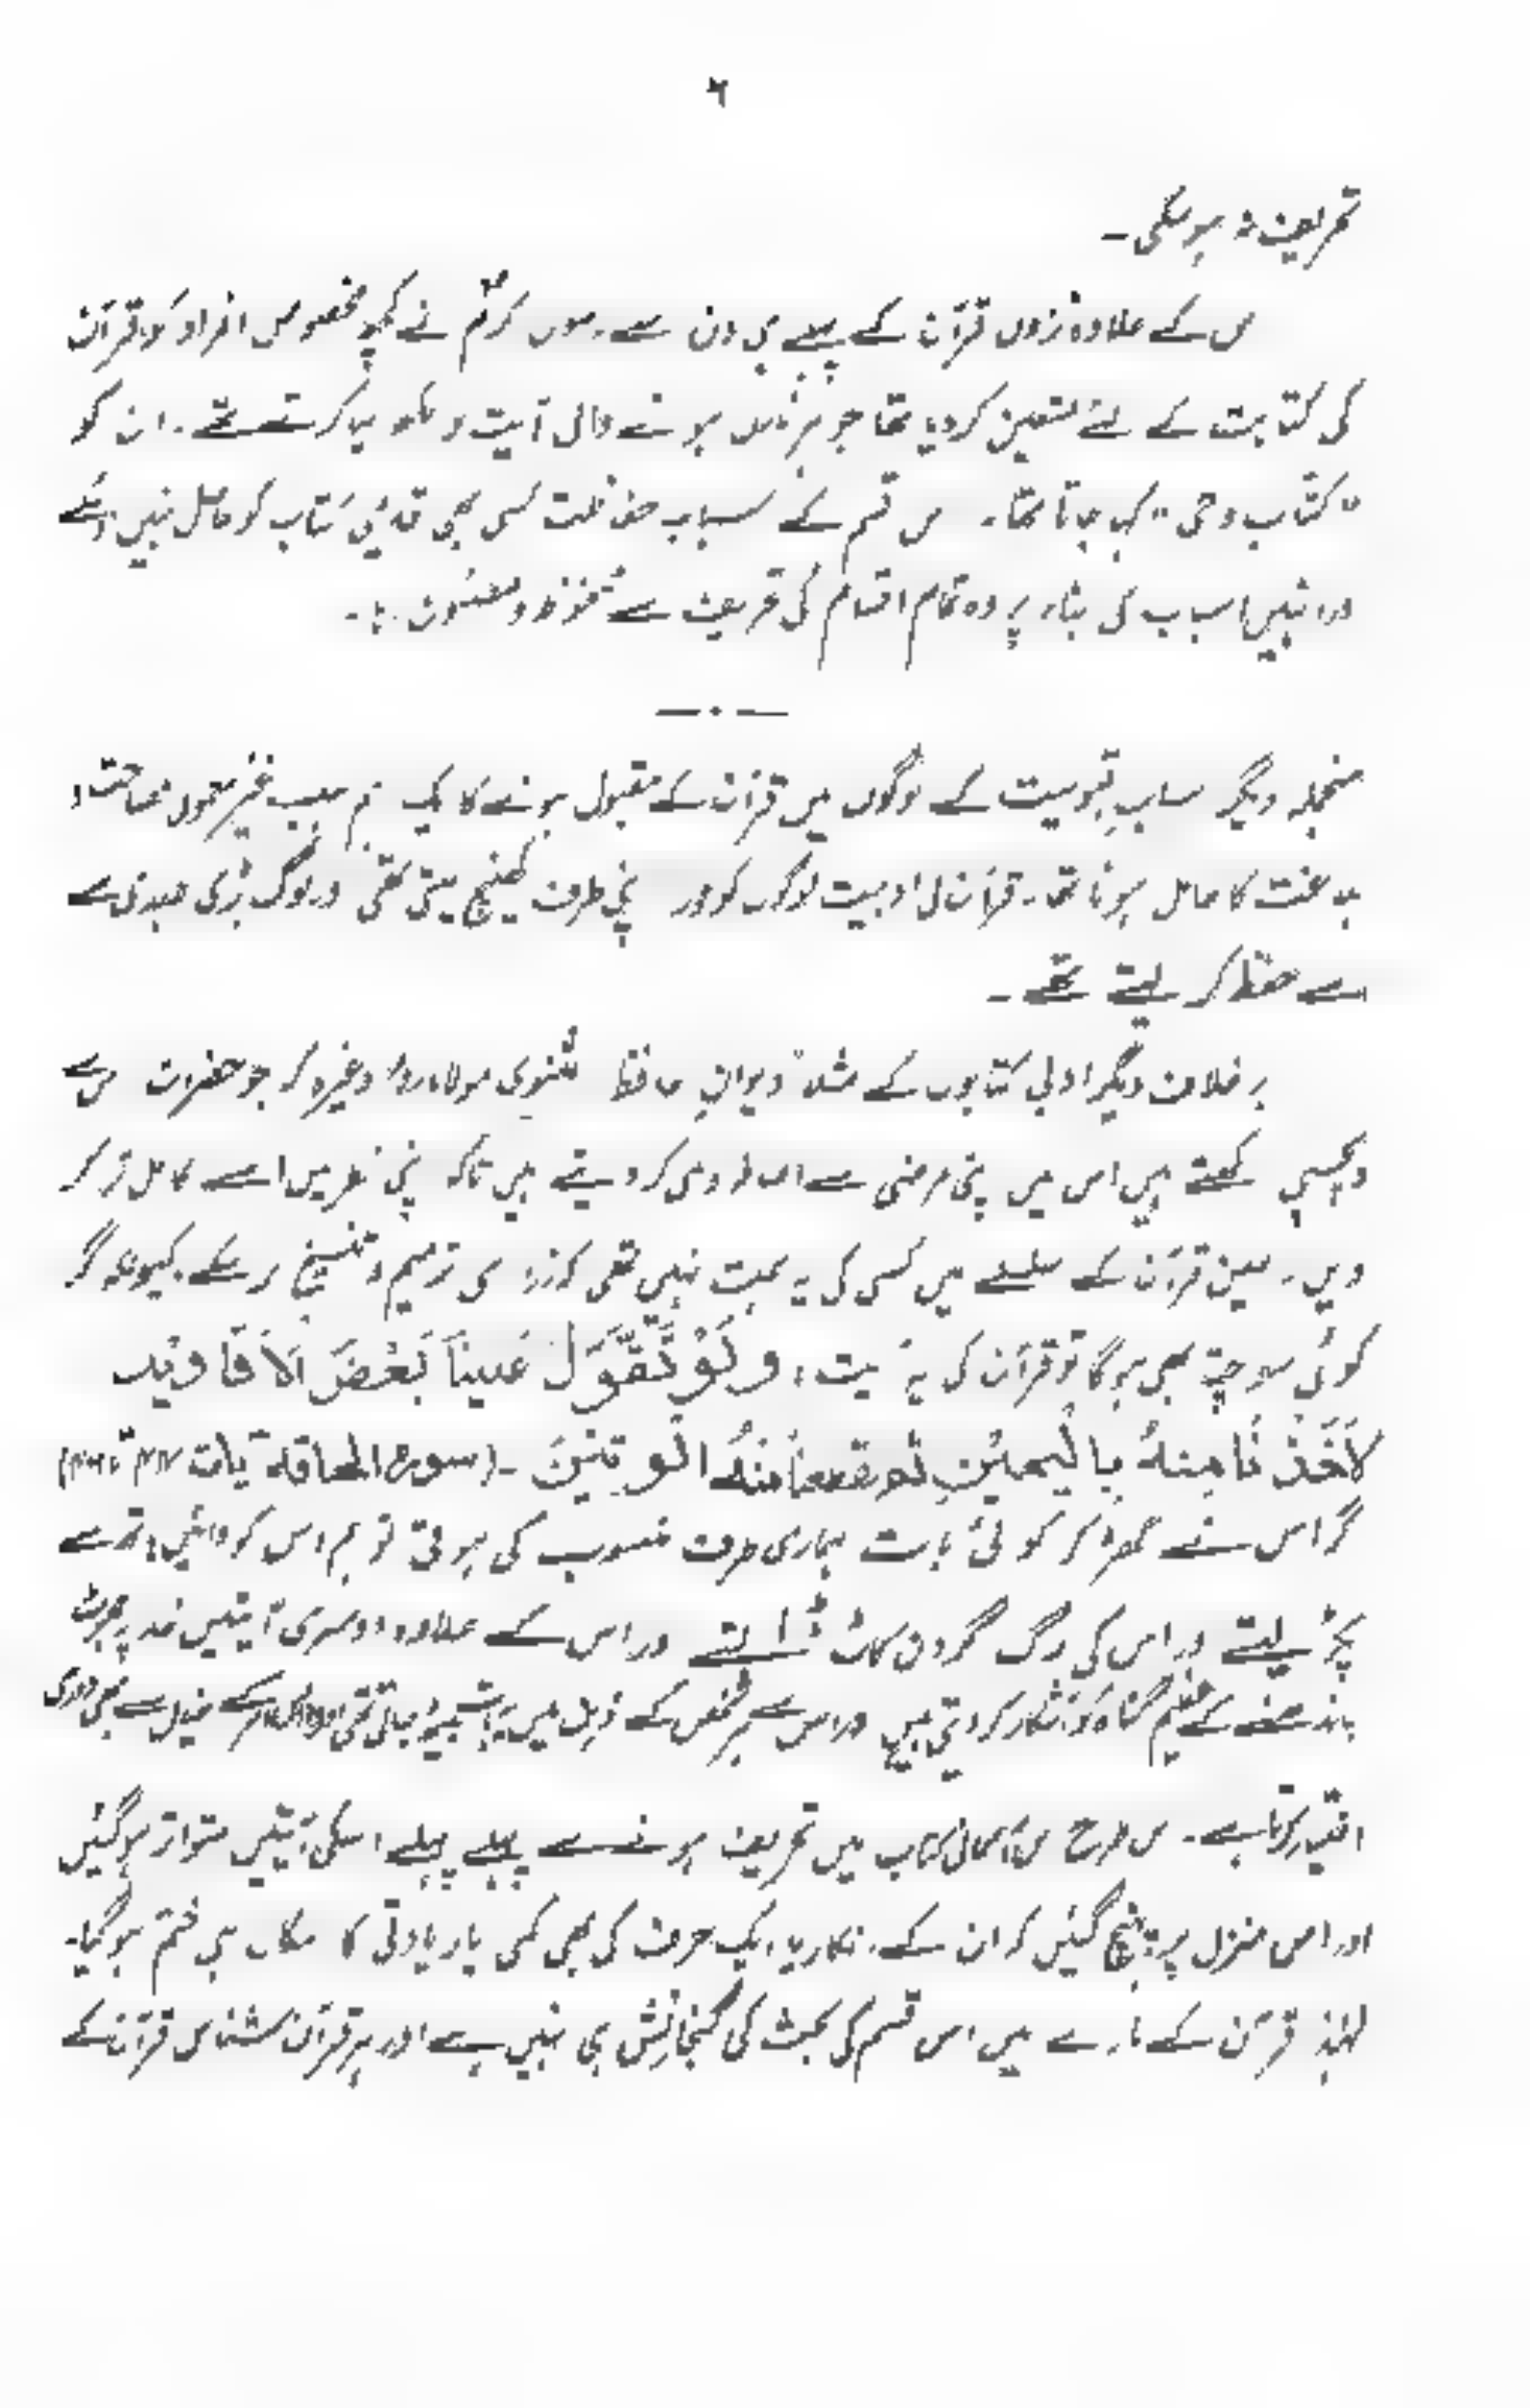 ۶
تحریف نہ ہو سکی۔
اس کے علاوہ نزول قرآن کے پہلے ہی دن سے رسول اکرمؐ نے کچھ مخصوص افراد کو قرآن
کی کتابت کے لئے متعین کر دیا تھا جو ہر نازل ہونے والی آیت کو لکھ لیا کرتے تھے۔ ان کو
"کتاب وحی" کہا جاتا تھا۔ اس قسم کے اسباب حفاظت کسی بھی قدیمی کتاب کو حاصل نہیں رہے
اور انہیں اسباب کی بناء پر وہ تمام اقسام کی تحریف سے محفوظ و مصئون رہا۔
منجملہ دیگر اسبابِ قبولیت کے لوگوں میں قرآن کے مقبول ہونے کا ایک اہم سبب غیر معمولی فصاحت و
بلاغت کا حامل ہونا تھا۔ قرآن کی ادبیت لوگوں کو اور اپنی طرف کھینچ لیتی تھی اور لوگ بڑی جلدی سے
اسے حفظ کر لیتے تھے۔
برخلاف دیگر ادبی کتابوں کے مثلاً دیوانِ حافظ مثنوی مولانا روم وغیرہ کہ جو حضرات اس سے
دلچسپی رکھتے ہیں اس میں اپنی مرضی سے اصلاح بھی کر دیتے ہیں تاکہ اپنی نظر میں اسے کامل تر کر
دیں۔ لیکن قرآن کے سلسلے میں کسی کی یہ ہمت نہیں تھی کہ ذرا سی ترمیم و تنسیخ کر سکے۔ کیونکہ اگر
کوئی سوچتا بھی ہوگا تو قرآن کی یہ آیت: وَلَوْ تَقَوَّلَ عَلَيْنَا بَعْضَ الْأَقَاوِيلِ
لَأَخَذْنَا مِنْهُ بِالْيَمِينِ ثُمَّ لَقَطَعْنَا مِنْهُ الْوَتِينَ۔ (سورہ الحاقہ آیات ۴۴ تا ۴۶)
اگر اس نے گھڑ کر کوئی بات ہماری طرف منسوب کی ہوتی تو ہم اس کو دائیں ہاتھ سے
پکڑ لیتے اور اس کی رگ گردن کاٹ ڈالتے اور اس کے علاوہ دوسری آیتیں خدا پر جھوٹ
باندھنے کے عظیم گناہ کو آشکار کر دیتی ہیں اور اس سے ہر شخص کے ذہن میں یہ بات بیٹھ جاتی تھی خیال سے بھی دوری
اختیار کرتا ہے۔ اس طرح اس آسمانی کتاب میں تحریف ہونے سے پہلے پہلے اسکی آیتیں متواتر ہو گئیں
اور اس منزل پر پہنچ گئیں کہ ان کے انکار یا ایک حرف کی بھی کمی یا زیادتی کا امکان ہی ختم ہو گیا۔
لہٰذا قرآن کے بارے میں اس قسم کی بحث کی گنجائش ہی نہیں ہے اور ہر قرآن شناس قرآن کے